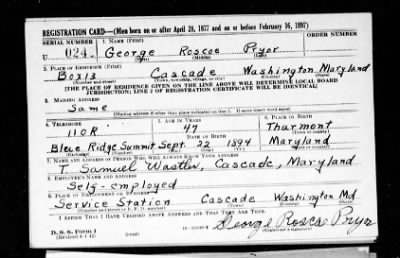 REGISTRATION CARD—(Men born on or after April 28, 1877 and on or before February 16, 1897)
SERIAL NUMBER 1. NAME (Print)
U 024 George Roscoe Pryor
(First) (Middle) (Last)
2. PLACE OF RESIDENCE (Print)
Box 13 Cascade Washington Maryland
(Number and street) (Town, township, village, or city) (County) (State)
[THE PLACE OF RESIDENCE GIVEN ON THE LINE ABOVE WILL DETERMINE LOCAL BOARD
JURISDICTION; LINE 2 OF REGISTRATION CERTIFICATE WILL BE IDENTICAL]
3. MAILING ADDRESS
Same
[Mailing address if other than place indicated on line 2. If same insert word same]
4. TELEPHONE 5. AGE IN YEARS 6. PLACE OF BIRTH
110R 47 Thurmont
DATE OF BIRTH (Town or county)
Blue Ridge Summit Sept. 22 1894 Maryland
7. NAME AND ADDRESS OF PERSON WHO WILL ALWAYS KNOW YOUR ADDRESS
T. Samuel Cascade, Maryland
8. EMPLOYER'S NAME AND ADDRESS
Self-employed
9. PLACE OF EMPLOYMENT OR BUSINESS
Service Station Cascade Washington Md
(Number and street or R. F. D. number) (Town) (County) (State)
I AFFIRM THAT I HAVE VERIFIED ABOVE ANSWERS AND THAT THEY ARE TRUE.
D. S. S. Form 1 George Roscoe Pryor